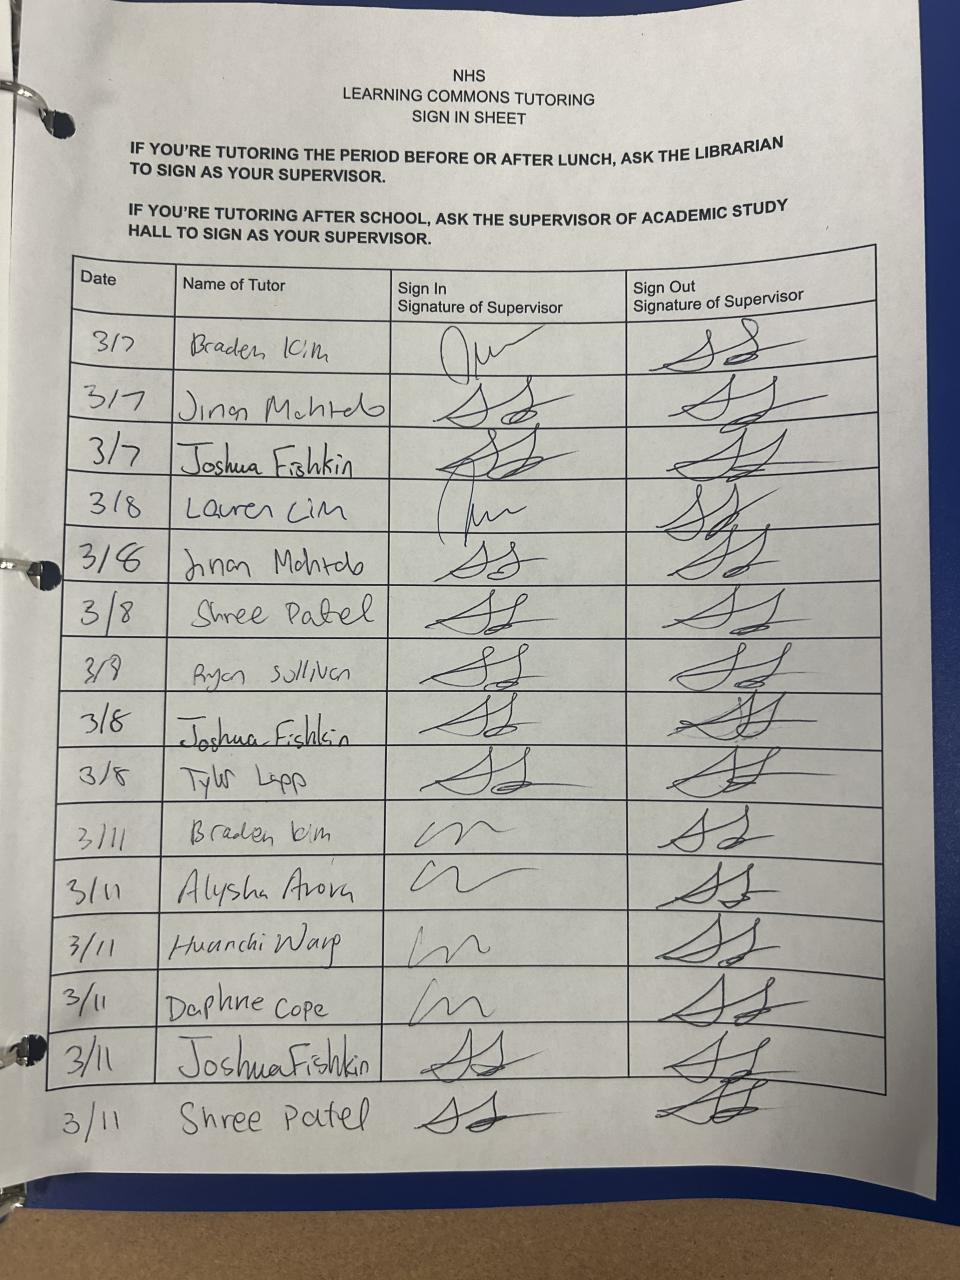 NHS
LEARNING COMMONS TUTORING
SIGN IN SHEET
IF YOU'RE TUTORING THE PERIOD BEFORE OR AFTER LUNCH, ASK THE LIBRARIAN
TO SIGN AS YOUR SUPERVISOR.
IF YOU'RE TUTORING AFTER SCHOOL, ASK THE SUPERVISOR OF ACADEMIC STUDY
HALL TO SIGN AS YOUR SUPERVISOR.
Date Name of Tutor Sign In Sign Out
Signature of Supervisor Signature of Supervisor
3/7 Braden Kim
3/7 Jinan
3/7 Joshua Fishkin
3/8 Lauren Lim
3/8 Jinan
3/8 Shree Patel
3/8 Ryan Sullivan
3/8 Joshua Fishkin
3/8 Tyler Lapp
3/11 Braden Kim
3/11 Alysha Arora
3/11 Huanchi Wang
3/11 Daphne Cope
3/11 Joshua Fishkin
3/11 Shree Patel